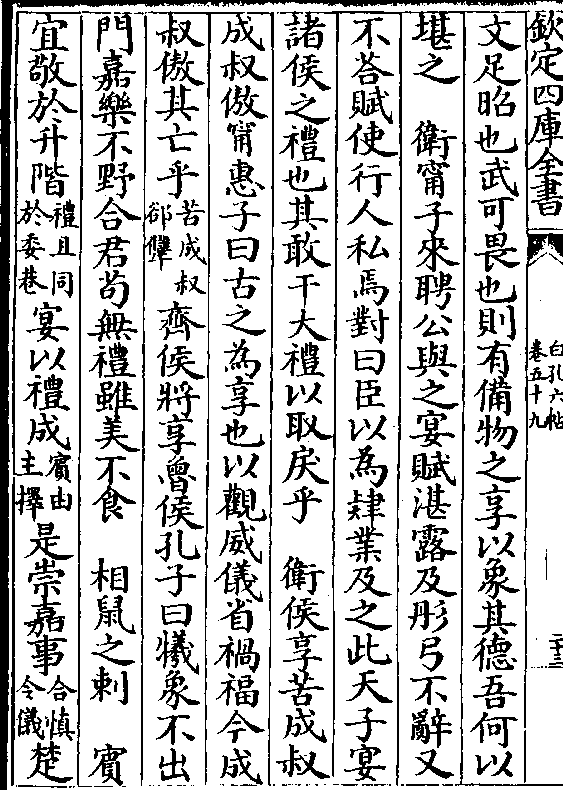 欽定四庫全書
白孔六帖
卷五十九
二十三
文足昭也武可畏也則有備物之享以象其德吾何以
堪之　衛甯子來聘公與之宴賦湛露及彤弓不辭又
不荅賦使行人私焉對曰臣以為肄業及之此天子宴
諸侯之禮也其敢干大禮以取戾乎　衛侯享苦成叔
成叔傲甯惠子曰古之為享也以觀威儀省禍福今成
叔傲其亡乎苦成叔郤犨　齊侯將享魯侯孔子曰犧象不出
門嘉樂不野合君苟無禮雖美不食　相鼠之刺　賓
宜敬於升階禮且同於委巷　宴以禮成賓由主擇　是崇嘉事合慎令儀　楚